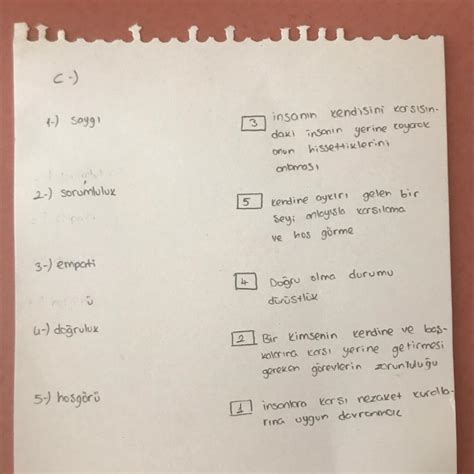 C-)
1-) saygı
3 insanın kendisini karşısın-
daki insanın yerine koyarak
onun hissettiklerini
anlaması
2-) sorumluluk
5 kendine aykırı gelen bir
şeyi anlayışla karşılama
ve hoş görme
3-) empati
4 Doğru olma durumu
dürüstlük
ü
4-) doğruluk
2 Bir kimsenin kendine ve baş-
kalarına karşı yerine getirmesi
gereken görevlerin zorunluluğu
5-) hoşgörü
1 insanlara karşı nezaket kuralla-
rına uygun davranmak